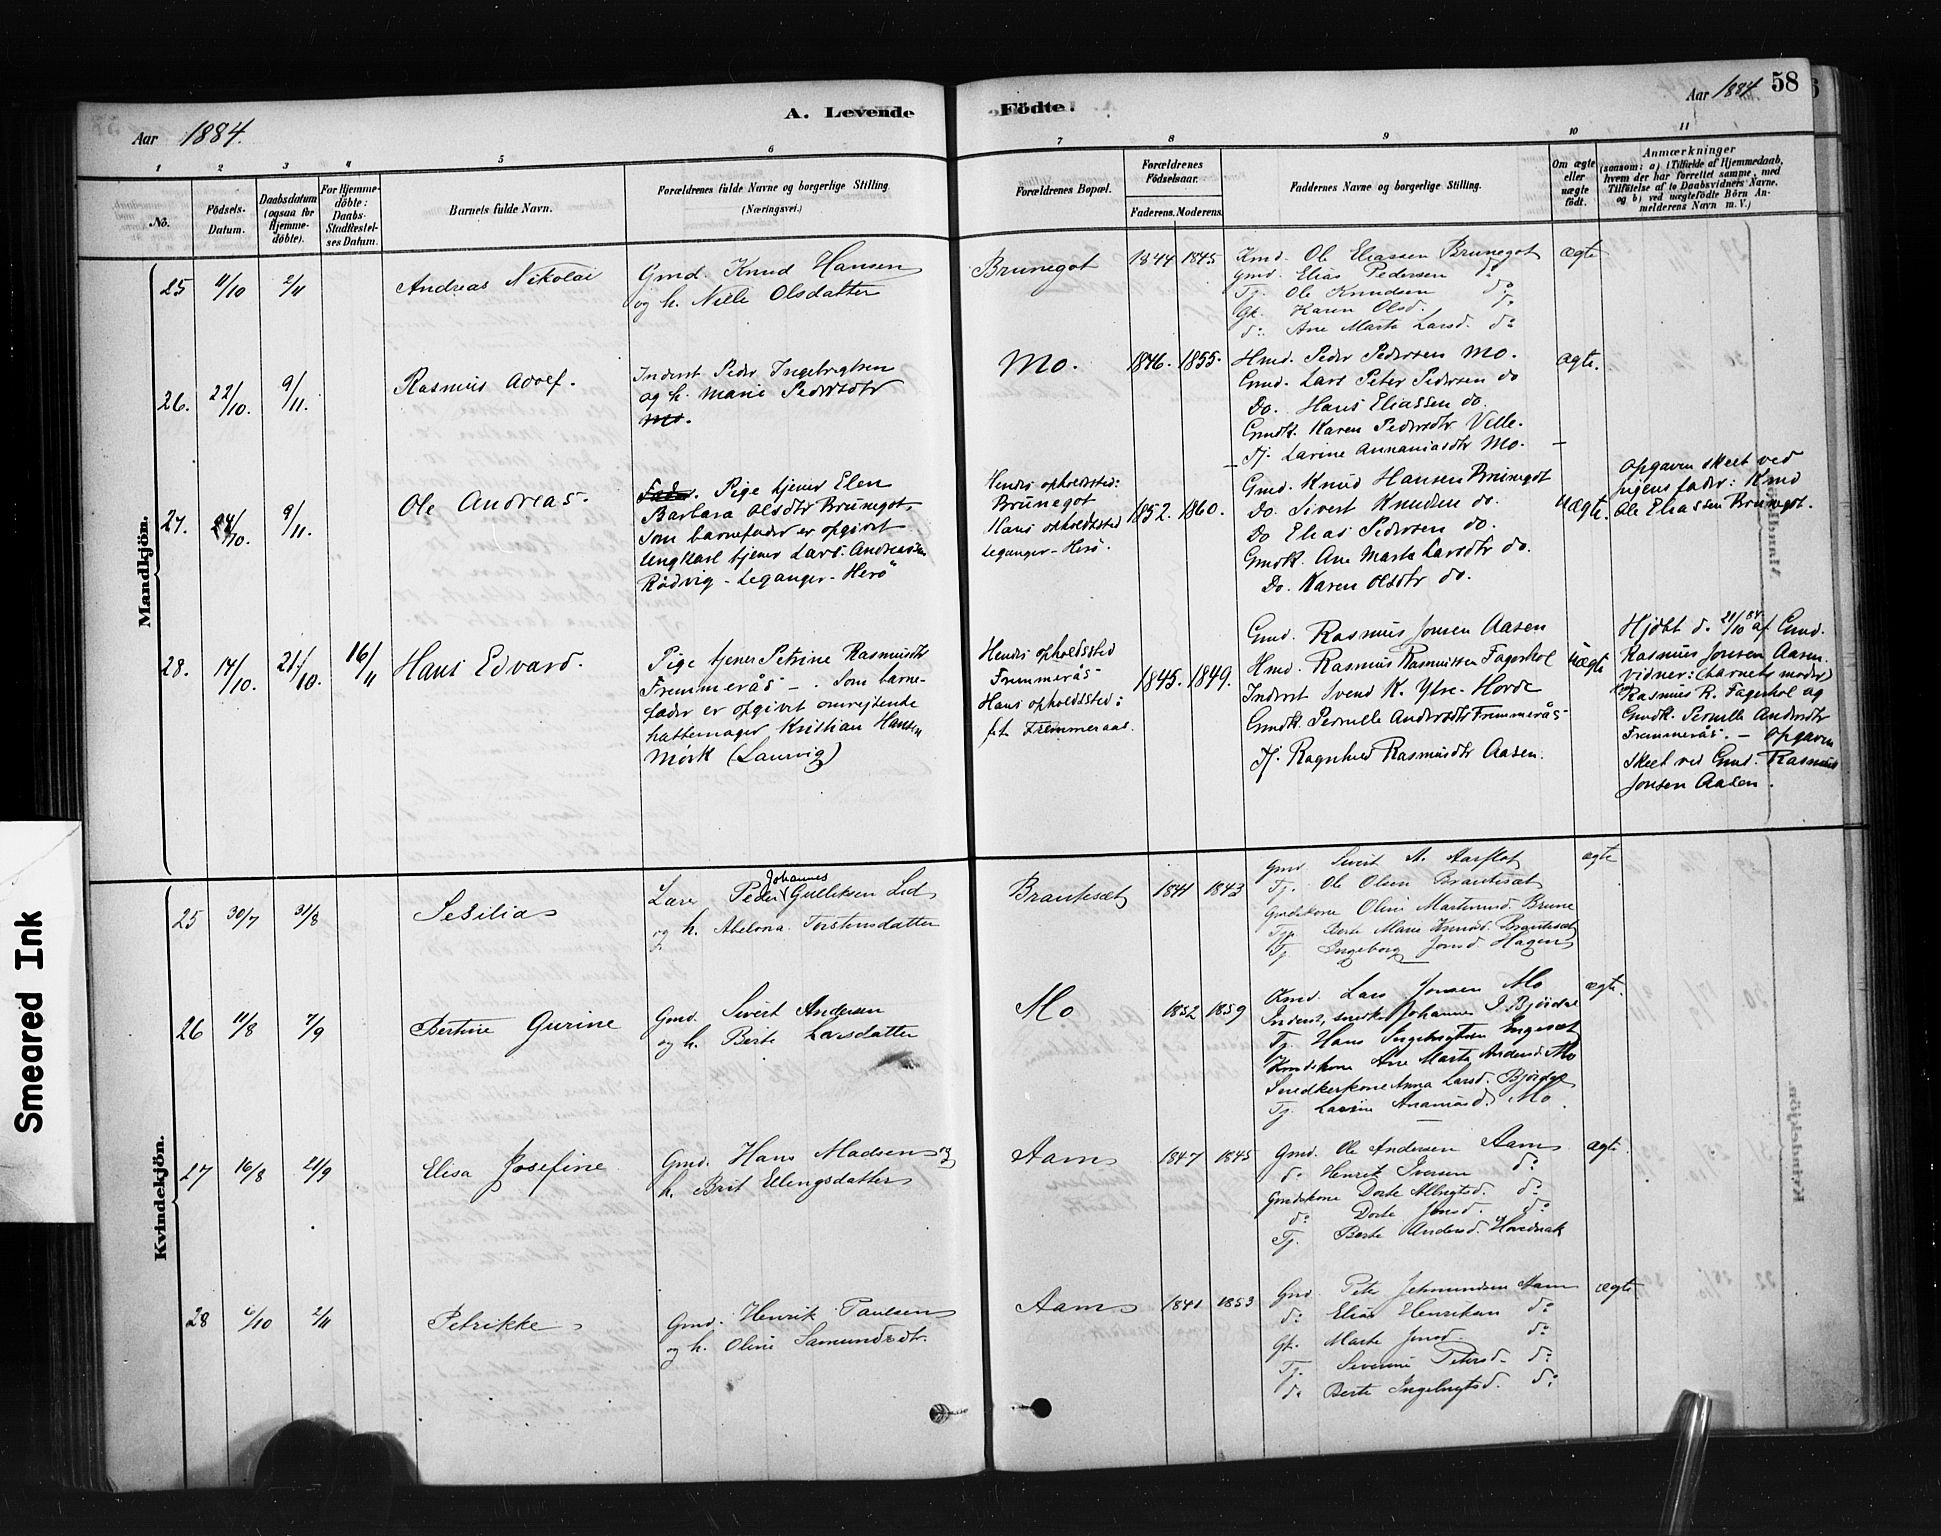 A. Levende Födte.
Aar 1884.
Aar 1884 58
1 2 3 4 5 6 7 8 9 10 11
No.
Födsels-Datum.
Daabsdatum (ogsaa for Hjemmedöbte).
For Hjemmedöbte: Daabs-Stadfæstelses Datum.
Barnets fulde Navn.
Forældrenes fulde Navne og borgerlige Stilling. (Næringsvei.)
Forældrenes Bopæl.
Forældrenes Födselsaar.
Faderens. Moderens.
Faddernes Navne og borgerlige Stilling.
Om ægte eller uægte født.
Anmærkninger
(saasom: a) i Tilfælde af Hjemmedaab, hvem der har forrettet samme, med Tilföielse af to Daabsvidners Navne, og b) ved uægtefödte Börn Anmelderens Navn m. V.)
Mandkjön.
25 11/10 2/11 Andreas Nikolai
Gmd. Knud Hansen
og h. Nille Olsdatter
Brunegot 1844 1845
Kmd. Ole Eliassen Brunegot ægte
Gmd. Elias Pedersen do
Tj. Ole Knudsen do
Gk. Karen Olsd. do
do. Ane Marta Larsd. do
26. 22/10. 9/11. Rasmus Adolf.
Inderst Peder Ingebrigtsen
og h. Marie Pedersdtr
Mo.
Mo. 1846. 1855.
Hmd. Peder Pedersen Mo. ægte.
Gmd. Lars Peter Pedersen do
Do. Hans Eliassen do.
Gmdk. Karen Pedersdtr Velle.
Tj. Larine Annaniasdtr Mo.
27. 24/10. 9/11. Ole Andreas.
Fader. Pige tjener Elen
Barbara Olsdtr Brunegot,
som barnefader er opgivet
ungkarl tjener Lars Andreassen
Rødvig - Leganger - Herö
Hendes opholdssted:
Brunegot
Hans opholdssted
Leganger - Herö.
1852. 1860.
Gmd. Knud Hansen Brunegot
Do. Sivert Knudsen do.
Do Elias Pedersen do.
Gmdk. Ane Marta Larsdtr do.
Do. Karen Olsdtr do.
Uægte.
Opgaven skeet ved
pigens fader: Kmd
Ole Eliassen Brunegot.
28. 14/10. 21/10. 16/11 Hans Edvard.
Pige tjener Petrine Rasmusdtr
Fremmerås - . Som barne-
fader er opgivet omreisende
hattemager Kristian Hansen
Mörk (Laurvig)
Hendes opholdssted
Fremmerås
Hans opholdssted:
f.t. Fremmeraas.
1845. 1849.
Gmd. Rasmus Jonsen Aasen
Hmd. Rasmus Rasmussen Fagerhol
Inderst Svend K. Ytre-Hovde
Gmdk. Pernille Andersdtr Fremmerås
Tj. Ragnhild Rasmusdtr Aasen.
Uægte
Hjdbt d. 21/10 84 af Gmd.
Rasmus Jonsen Aasen.
vidner: (barnets moder)
Rasmus R. Fagerhol og
Gmdk. Pernille Andersdtr
Fremmerås. - Opgaven
skeet ved Gmd. Rasmus
Jonsen Aasen.
Kvindekjön.
25 30/7 31/8 Sesilia
Lærer Peder Johannes Gulliksen Lid
og h. Abelona Torstensdatter
Brautesæt 1841 1843
Gmd Sivert A. Aarflot ægte
Tj. Ole Olsen Brautesæt
Gmdskone Oline Martinusd. Brune
Tj. Berte Marie Knudsd. Brautesæt
Tj. Ingeborg Jonsd. Hagen
26 11/8 7/9 Bertine Gurine
Gmd. Sivert Andersen
og h. Berte Larsdatter
Mo 1852 1859
Kmd. Lars Jonsen Mo ægte.
Inderst, snedker Johannes J. Bjørdal
Tj. Hans Ingebrigtsen Engeset
Kmdskone Ane Marta Andersd. Mo
Snedkerkone Anna Larsd. Bjørdal
Tj. Larine Ananiasd. Mo
27 16/8 21/9 Elisa Josefine
Gmd. Hans Madsen og
h. Brit Ellingsdatter
Aam 1847 1845
Gmd. Ole Andersen Aam ægte.
do. Henrik Iversen do
Gmdskone Dorte do
do Dorte Jonsd. do
Tj. Berte Andersd. Hovdenak
28 6/10 2/11 Petrikke
Gmd. Henrik Paulsen
og h. Oline Samundsdtr.
Aam 1841 1853
Gmd Peter Aam ægte
do. Elias Henriksen do
Gk. Marte Jonsd. do
Tj. Severine Petersd. do
do. Berte Ingebrigtsd. do
Smeared Ink